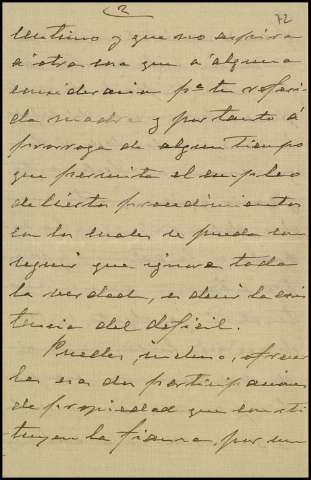 2 72
centimo y que no aspira
a otra cosa que a alguna
consideracion pª tu referi-
da madre y por tanto á
prorroga de algun tiempo
que permita el empleo
de ciertos procedimientos
con los cuales se pueda con
seguir que ignore toda
la verdad, es decir la exis
tencia del deficit.
Puedes, incluso, ofrecer
les esas dos participaciones
de propiedad que consti
tuyen la fianza, por un